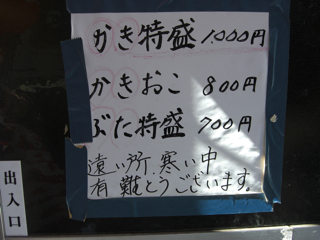 かき特盛 1,000円
かきおこ 800円
ぶた特盛 700円
遠い所 寒い中
有難とうございます。
出入口